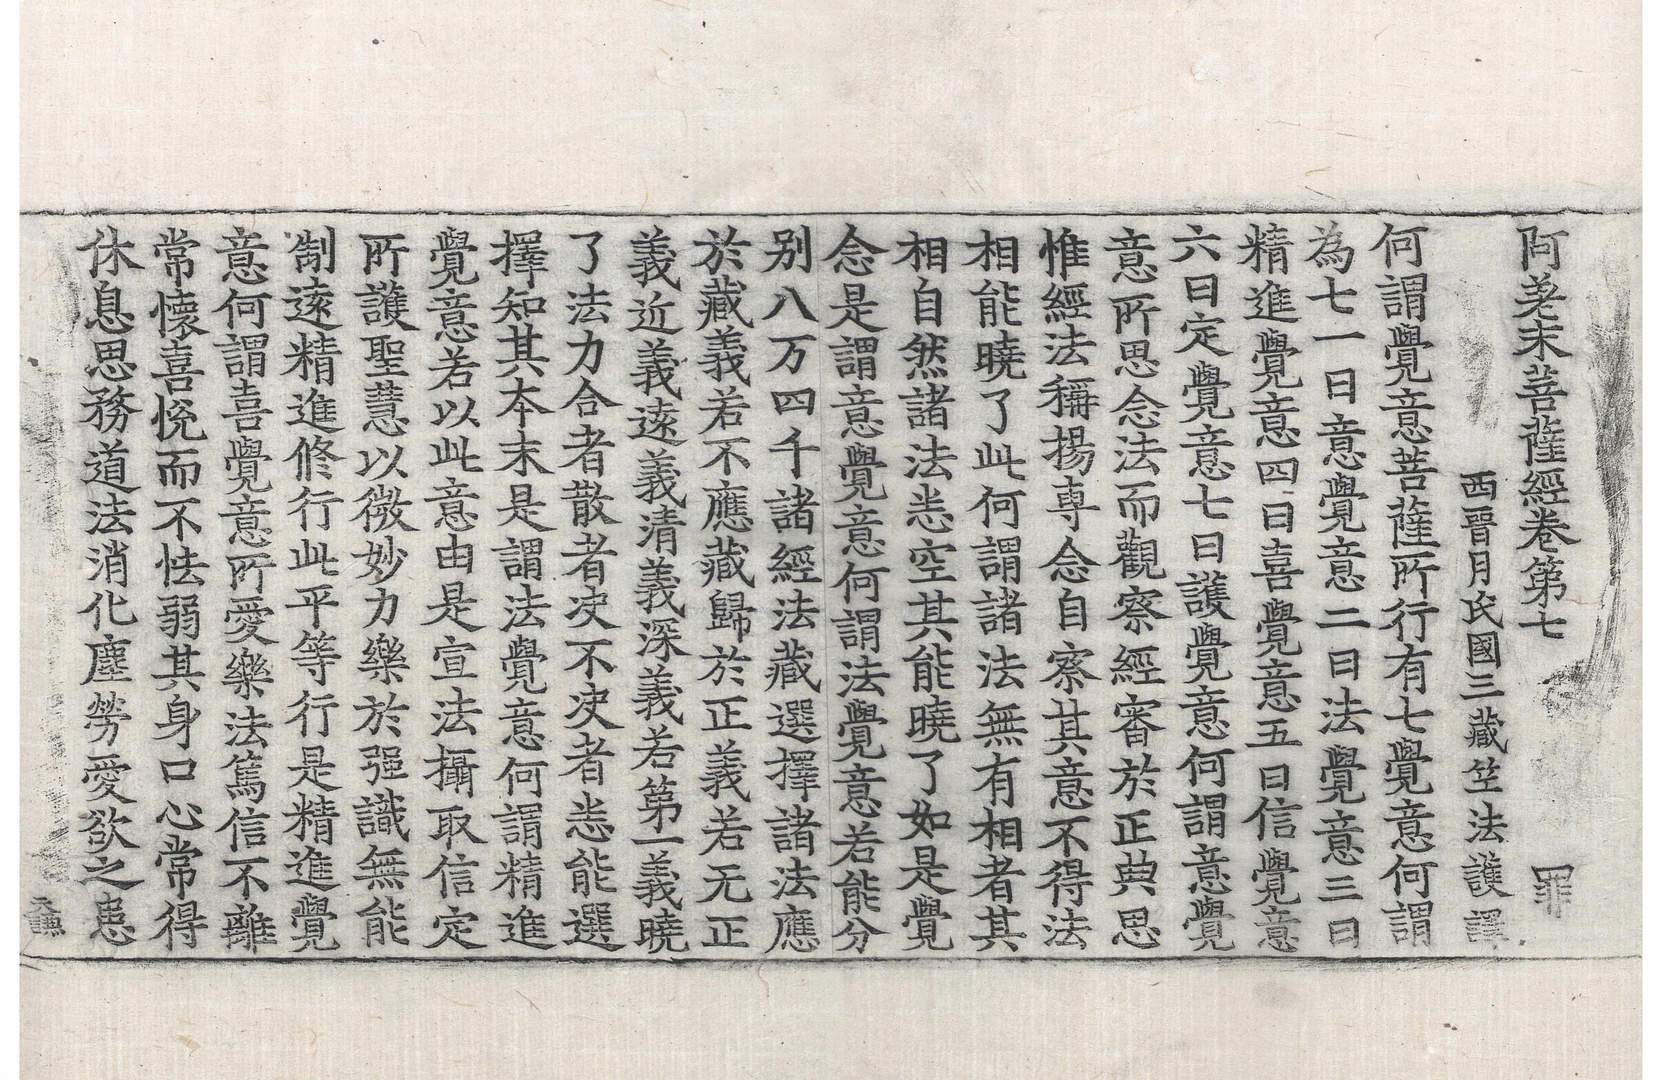 阿差末菩薩經卷第七　罪
西晉月氏國三藏竺法護譯
何謂覺意菩薩所行有七覺意何謂
為七一曰意覺意二曰法覺意三曰
精進覺意四曰喜覺意五曰信覺意
六曰定覺意七曰護覺意何謂意覺
意所思念法而觀察經審於正典思
惟經法稱揚専念自察其意不得法
相能曉了此何謂諸法無有相者其
相自然諸法悉空其能曉了如是覺
念是謂意覺意何謂法覺意若能分
别八万四千諸經法藏選擇諸法應
於藏義若不應藏歸於正義若无正
義近義遠義清義深義若第一義曉
了法力合者散者决不决者悉能選
擇知其本末是謂法覺意何謂精進
覺意若以此意由是宣法攝取信定
所護聖慧以微妙力樂於强識無能
制遠精進修行此平等行是精進覺
意何謂喜覺意所愛樂法篤信不離
常懷喜悅而不怯弱其身口心常得
休息思務道法消化塵勞愛欲之患